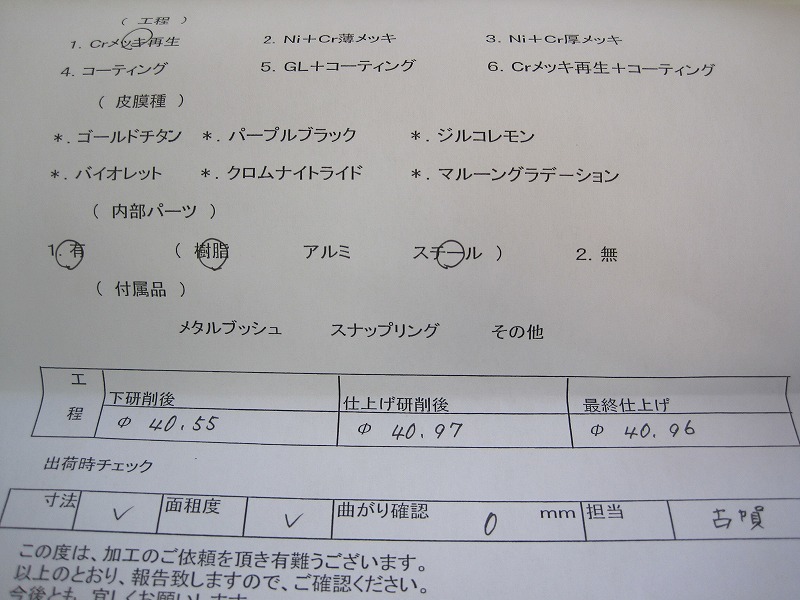 ( 工程 )
1. Crメッキ再生 2. Ni＋Cr薄メッキ 3. Ni＋Cr厚メッキ
4. コーティング 5. GL＋コーティング 6. Crメッキ再生＋コーティング
( 皮膜種 )
*. ゴールドチタン *. パープルブラック *. ジルコレモン
*. バイオレット *. クロムナイトライド *. マルーングラデーション
( 内部パーツ )
1. 有 ( 樹脂 アルミ スチール ) 2. 無
( 付属品 )
メタルブッシュ スナップリング その他
工程 下研削後 仕上げ研削後 最終仕上げ
Φ 40.55 Φ 40.97 Φ 40.96
出荷時チェック
寸法 ✓ 面租度 ✓ 曲がり確認 0 mm 担当
この度は、加工のご依頼を頂き有難うございます。
以上のとおり、報告致しますので、ご確認ください。
今後とも、宜しくお願いします